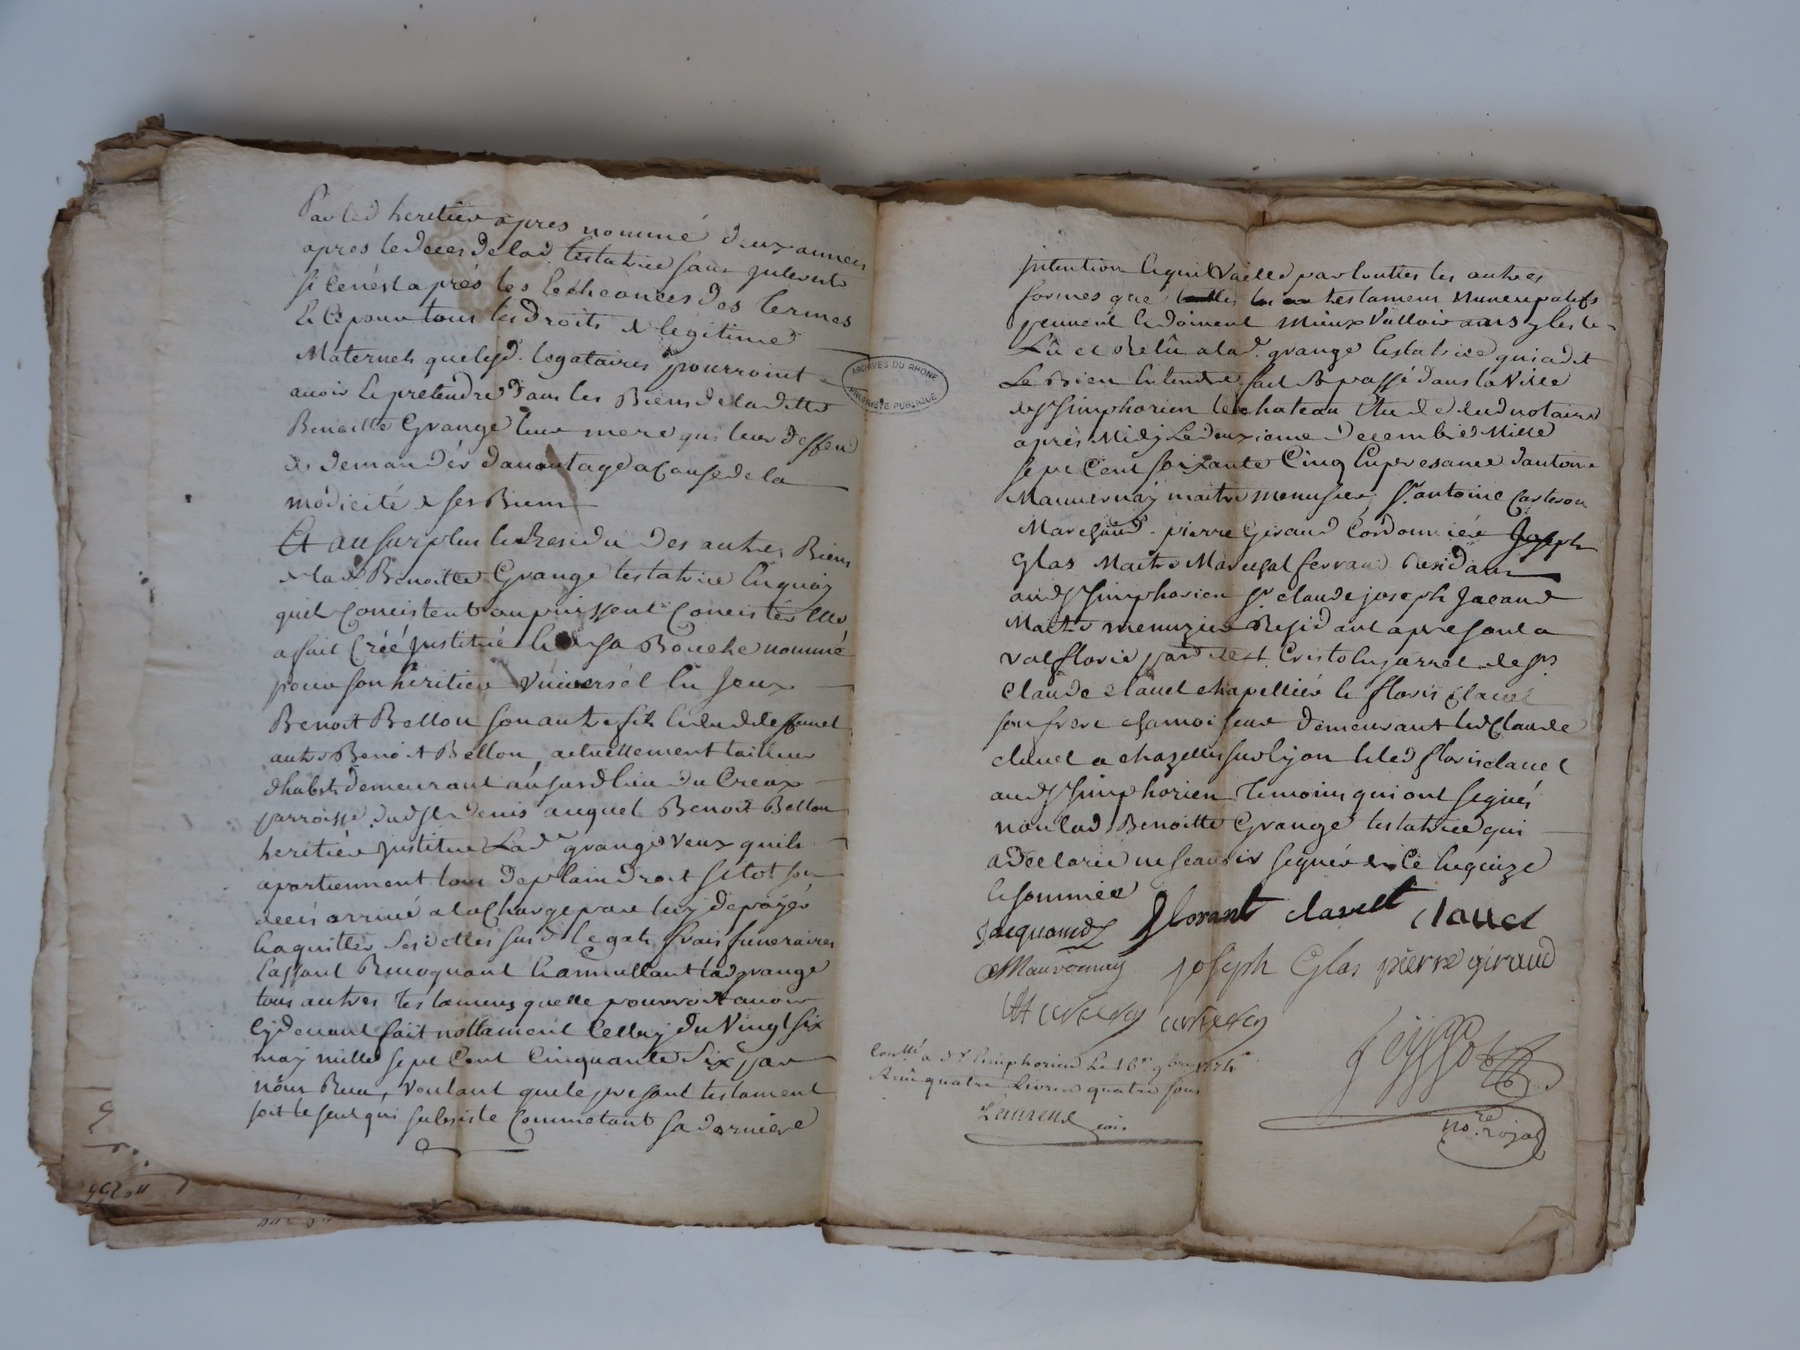 Par led heritier apres nommé deux annees
apres le deces de lad. testatrice sans jnterests
si cenést aprés les Echeances des termes
Et Ce pour tous les droits & legitime
Maternels que lesd. legataires pourroint
avoir Et pretendre dans les Biens de la ditte
Benoitte Grange leur mere qui leur deffend
de demander davantage a Cause de la
modicité de ses Biens
Et au surplus le Residu des autres Biens
de lad Benoitte Grange testatrice En quoy
quil Concistent ou puissent Concister Elle
a fait Créé Jnstitué Et de sa Bouche nommé
pour son heritier Vniversél En Seul
Benoit Bellon son autre fils Et dud deffunct
autre Benoit Bellon, actuellement tailleur
dhabits demeurant aujourdhuy du Creux
parroisse dud St Denis auquel Benoit Bellon
heritier jnstitué Lad. grange Veux quils
apartiennent tous de plain droit sitot son
decés arrivé a la Charge par luy de payér
Et aquitter ses dettes susd legats frais funeraires
Cassant Revoquant Et annullant lad grange
tous autres testamens quelle pourroit avoir
Cydevant fait nottament Celluy du Vingt six
may mille sept Cent Cinquante Six par
nous Reçu, Voulant que le present testament
soit le seul qui subsiste Comme etant sa derniere
jntention Et quil Vaille par touttes les autres
formes que testamens nuncupatifs
peuvent Et doivent mieux Valloir
Lû et Relû a lad. grange testatrice qui a dit
Le Bien Entendre fait & passé dans la Ville
de St Simphorien le chateau Etude dud notaire
aprés Midy Le deuxieme Decembre Mille
sept Cent soixante Cinq En presance d'antoine
Mauvernay maitre menusier, Sr. antoine Carteron
Marchand. pierre Giraud Cordonnier Joseph
Glas Maitre Marechal ferrand Residans
aud St Simphorien Sr. claude joseph Jacand
Maitre menuzier Residant a presant a
Valflorie
Claude Clavel chapellier & floris Clavel
son frere chamoiseur demeurant led Claude
Clavel a chazelles sur lyon & led floris clavel
aud St Simphorien temoins qui ont signés
non lad Benoitte Grange testatrice qui
a declaré ne scavoir signér de Ce Enquize
& sommée
Jacquand florant clavelt clavel
Mauvernay joseph Glas pierre giraud
Carteron
Conttlé a St. Simphorien Le 16e.
Reçu quatre Livres quatre sous
Laurens
no.re royal
ARCHIVES DU RHONE
PUBLIQUE